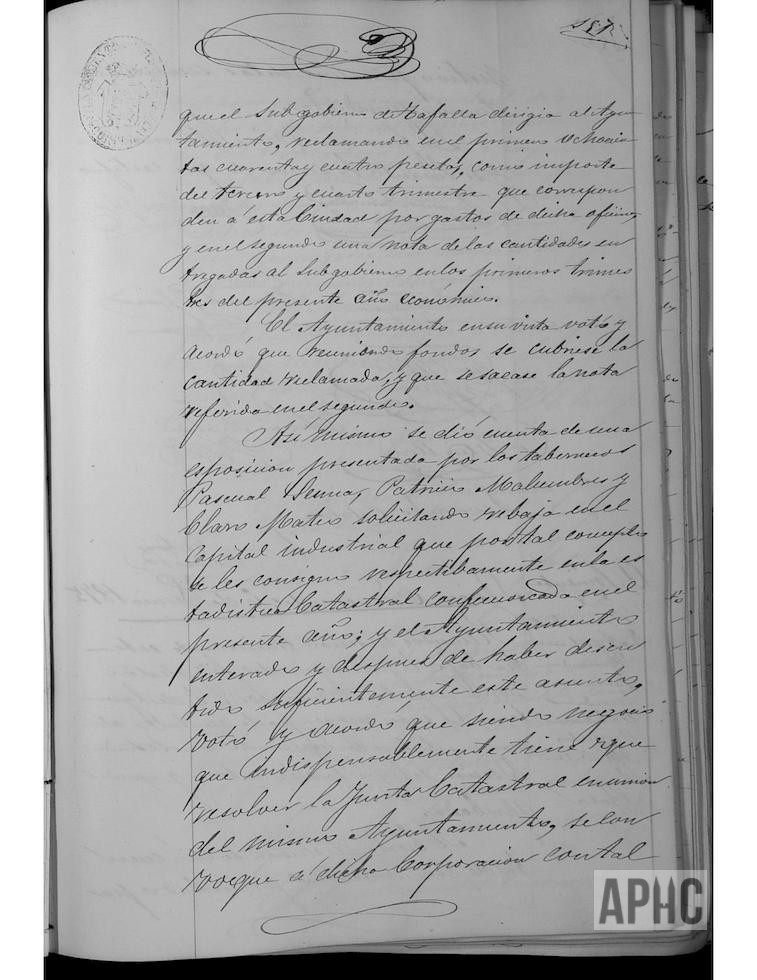 187
que el Subgobierno de Tafalla dirigia al Ayun
tamiento, reclamando en el primero ochocien
tas cuarenta y cuatro pesetas, como importe
del tercero y cuarto trimestre que correspon
den á esta Ciudad por gastos de dicha oficina,
y en el segundo una nota de las cantidades en
tregadas al Subgobierno en los primeros trimes
tres del presente año económico.
El Ayuntamiento en su vista votó y
acordó que reuniendo fondos se cubriese la
cantidad reclamada, y que se sacase la nota
referida en el segundo.
Asi mismo se dió cuenta de una
esposicion presentada por los taberneros
Pascual Patricio y
Claro Mateo solicitando rebaja en el
capital industrial que por tal concepto
se les consigna respectibamente en la es
tadistica Catastral confeccionada en el
presente año; y el Ayuntamiento
enterado y despues de haber discu
tido suficientemente este asunto,
votó y acordó, que siendo negocio
que indispensablemente tiene que
resolver la Junta Catastral en union
del mismo Ayuntamiento, se con
voque á dicha Corporacion con tal
APHC